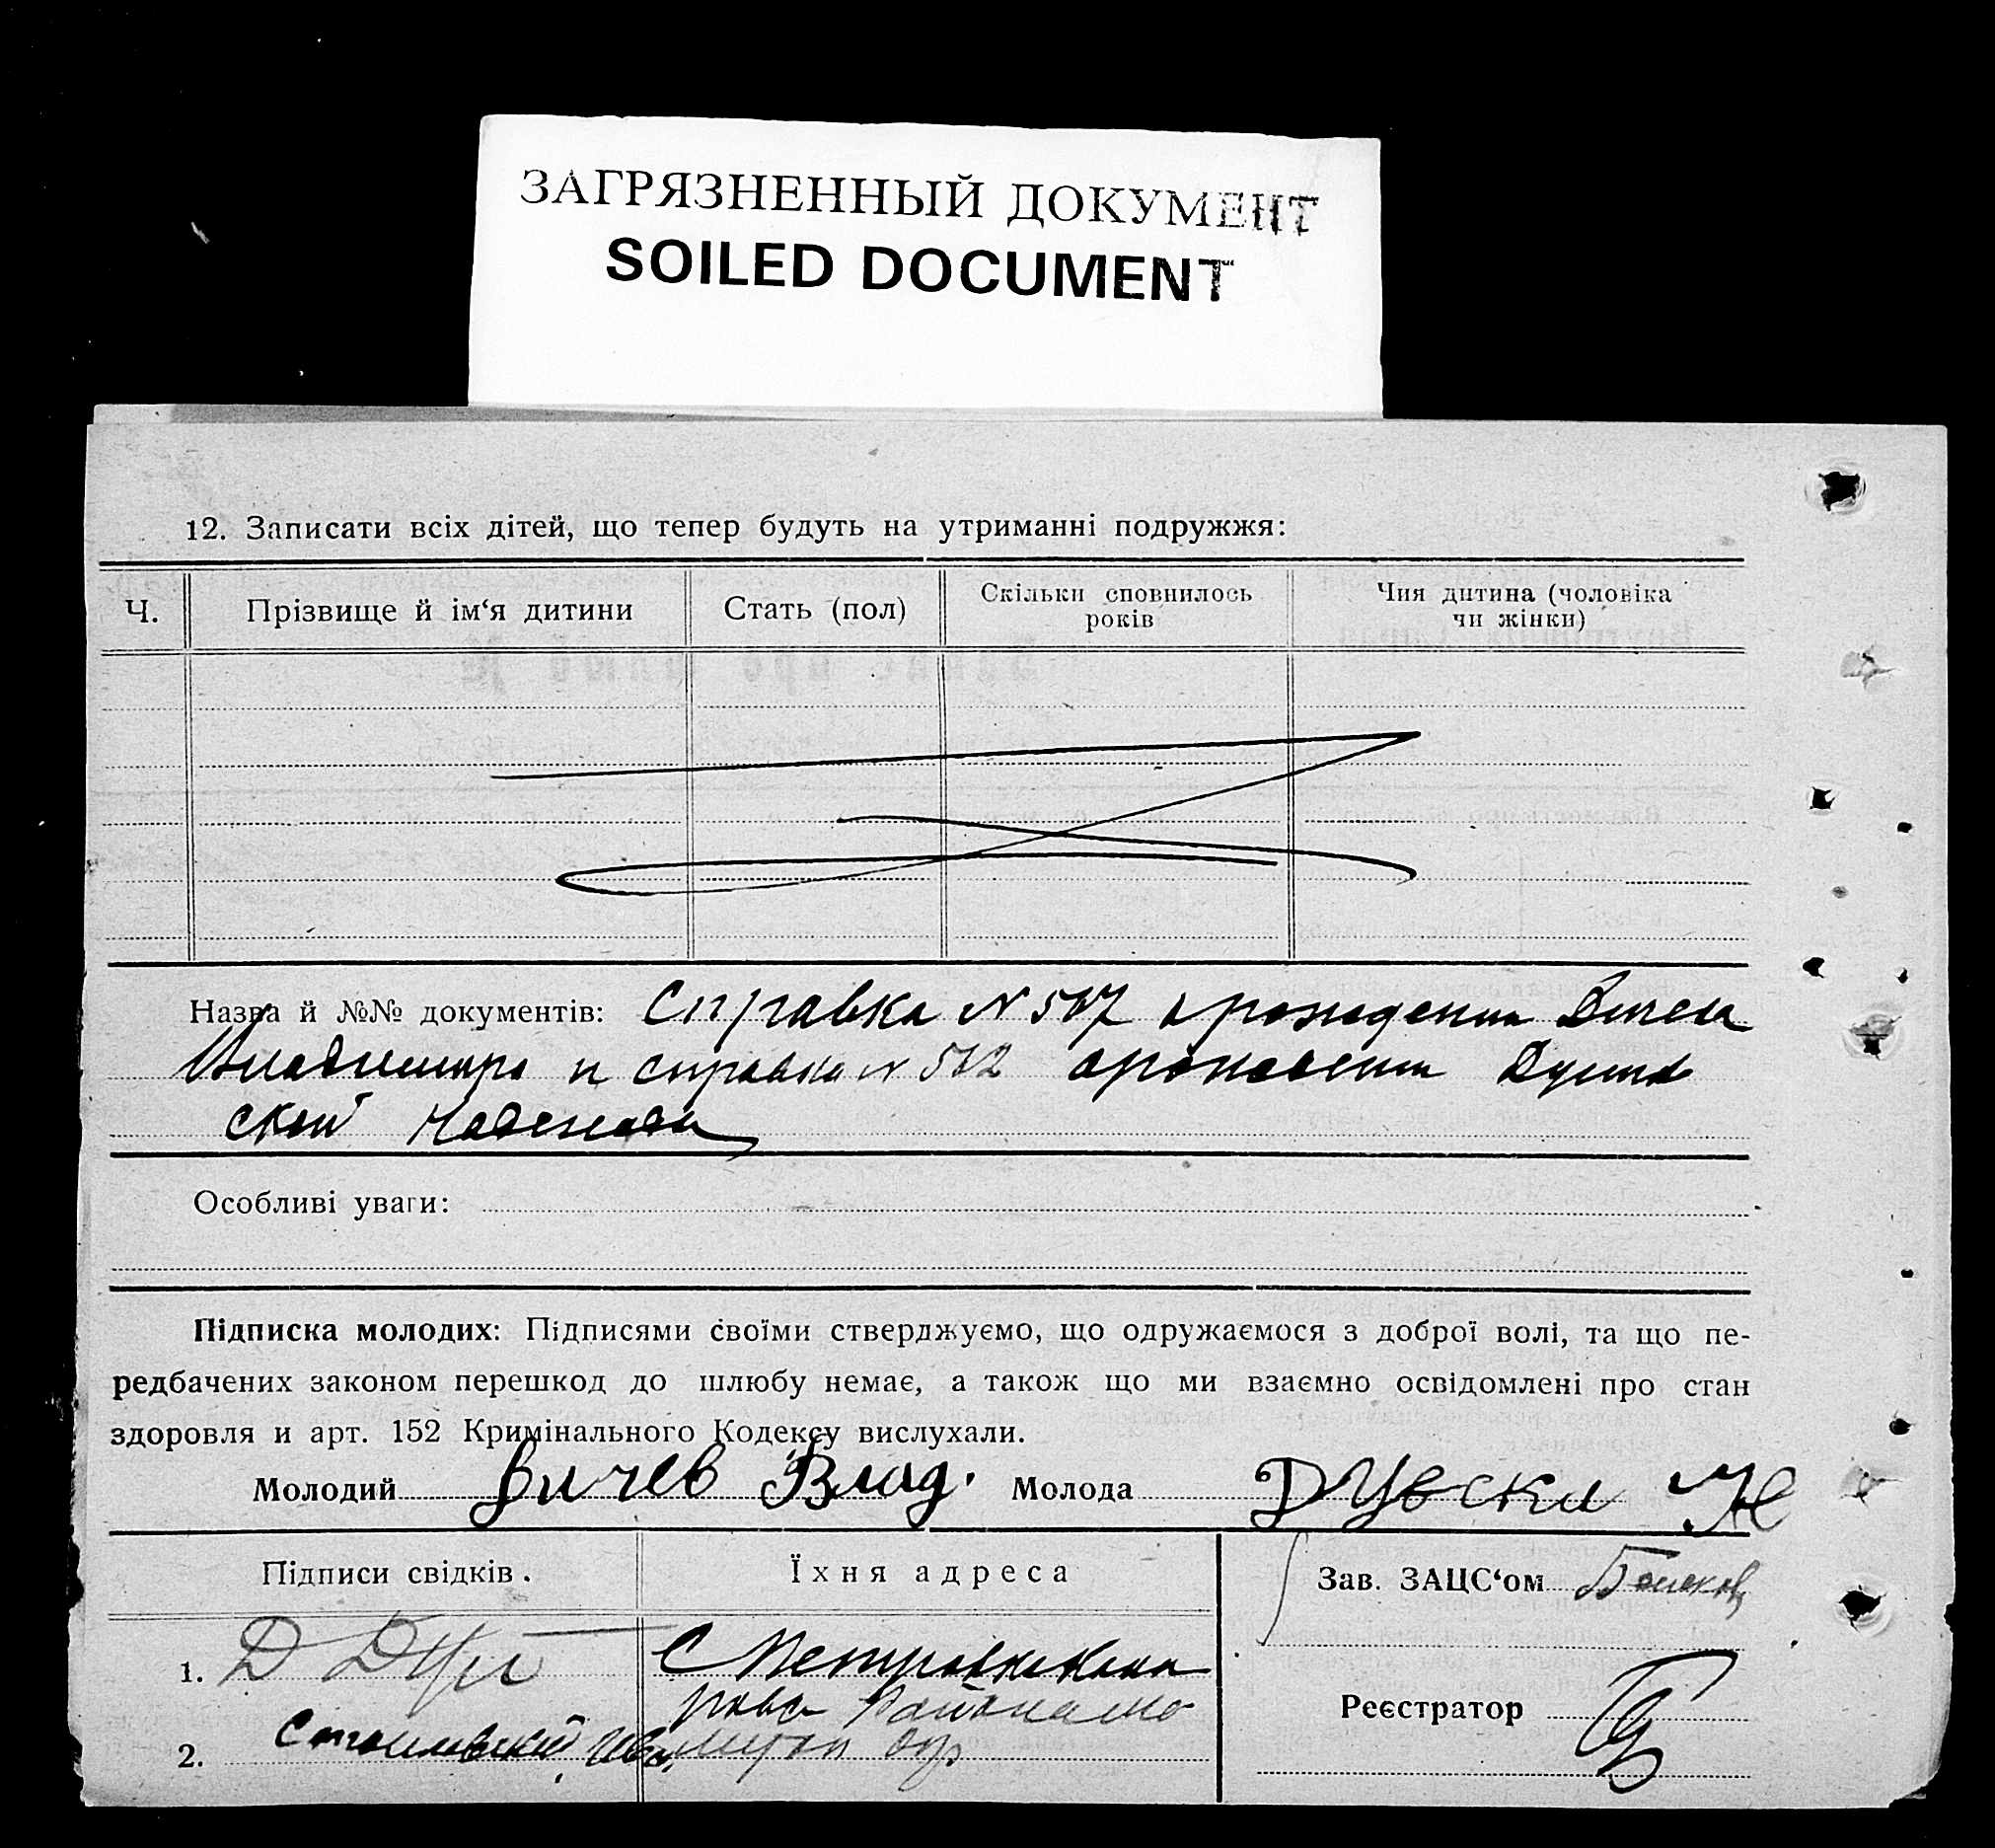 ЗАГРЯЗНЕННЫЙ ДОКУМЕНТ
SOILED DOCUMENT
12. Записати всіх дітей, що тепер будуть на утриманні подружжя:
Ч. Прізвище й ім‘я дитини Стать (пол) Скільки сповнилось років Чия дитина (чоловіка чи жінки)
Назва й №№ документів: Справка N 507 о рождении
Владимира и справка N 502 о рождении
ской Надежды
Особливі уваги:
Підписка молодих: Підписями своїми стверджуємо, що одружаємося з доброї волі, та що пе-
редбачених законом перешкод до шлюбу немає, а також що ми взаємно освідомлені про стан
здоровля и арт. 152 Кримінального Кодексу вислухали.
Молодий Вичев Влад. Молода
Підписи свідків. Їхня адреса Зав. ЗАЦС‘ом
1. Д С
Реєстратор
2.